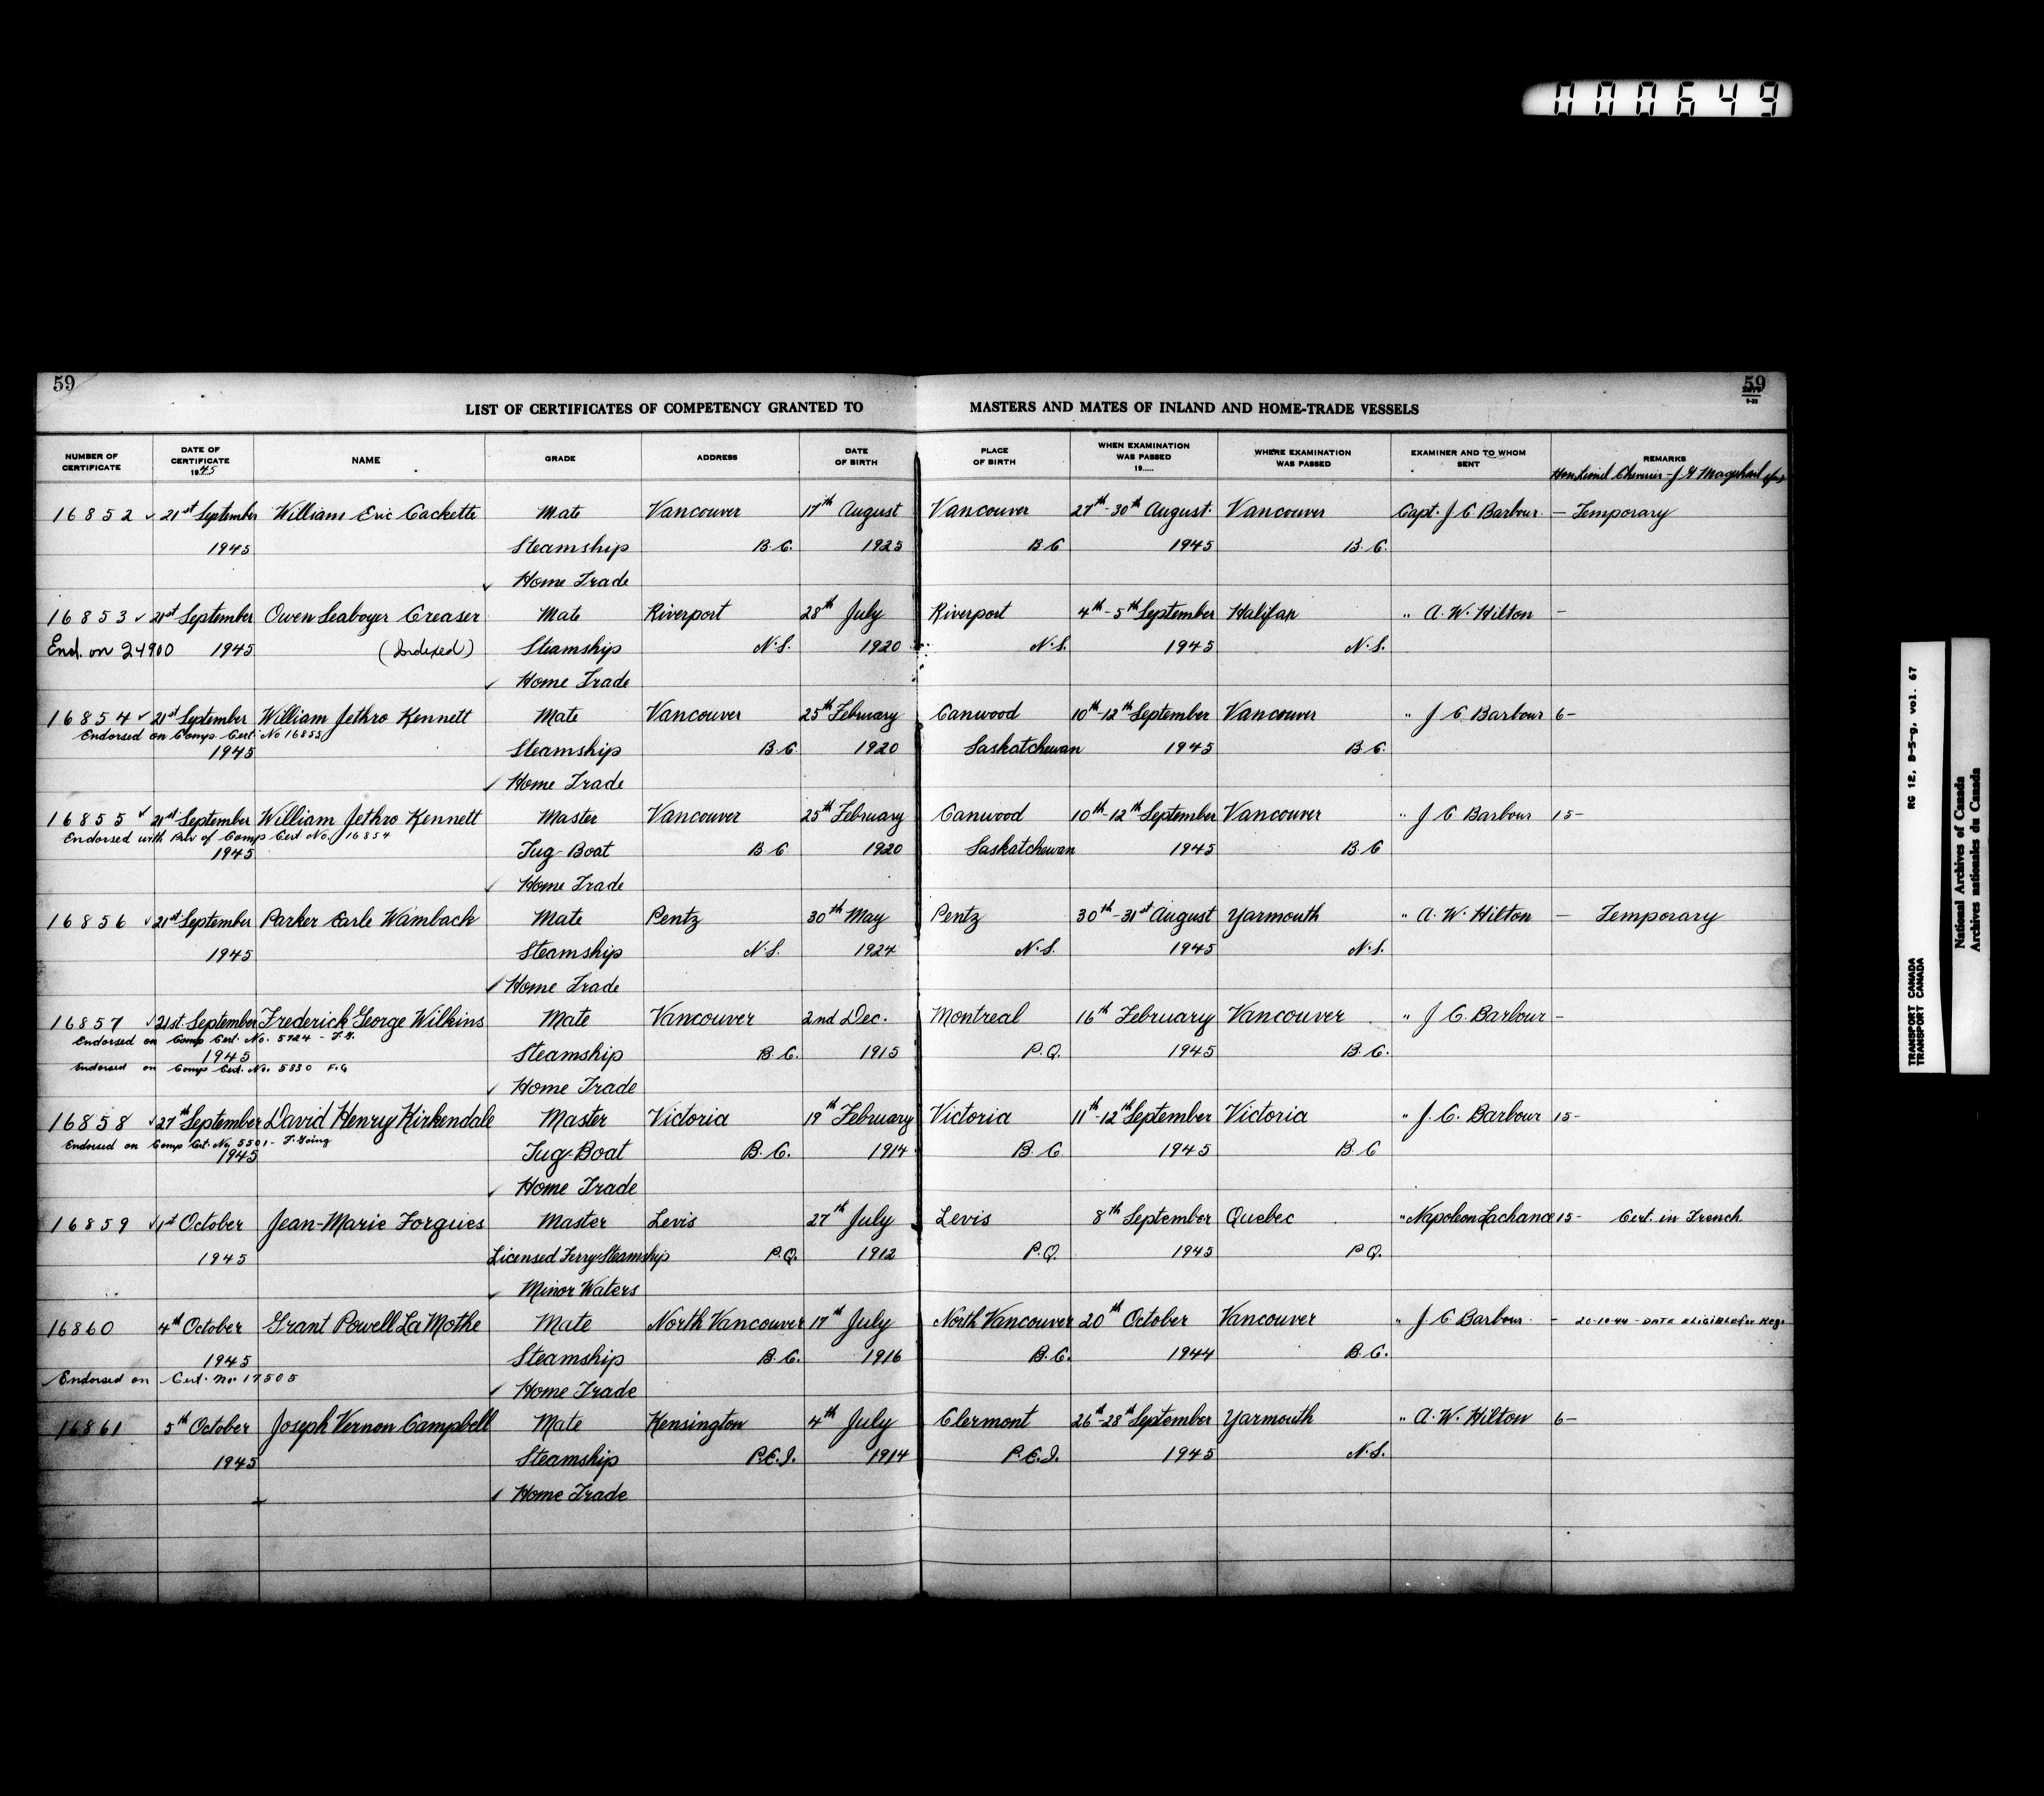 000649
59
59
LIST OF CERTIFICATES OF COMPETENCY GRANTED TO MASTERS AND MATES OF INLAND AND HOME-TRADE VESSELS
NUMBER OF CERTIFICATE DATE OF CERTIFICATE 1945 NAME GRADE ADDRESS DATE OF BIRTH PLACE OF BIRTH WHEN EXAMINATION WAS PASSED 19..... WHERE EXAMINATION WAS PASSED EXAMINER AND TO WHOM SENT REMARKS
Hon. Lionel Chevrier - J. G.
16852 ✓ 21st September William Eric Cackette Mate Vancouver 17th August Vancouver 27th-30th August Vancouver Capt. J C Barbour - Temporary
1945 Steamship B.C. 1925 B C 1945 B.C.
✓ Home Trade
16853 ✓ 21st September Owen Seaboyer Creaser Mate Riverport 28th July Riverport 4th-5th September Halifax " A. W. Hilton -
End. on 24900 1945 (Indexed) Steamship N.S. 1920 N.S. 1945 N.S.
✓ Home Trade
16854 ✓ 21st September William Jethro Kennett Mate Vancouver 25th February Canwood 10th-12th September Vancouver " J C Barbour 6-
Endorsed on Comp. Cert. No 16855
1945 Steamship B C 1920 Saskatchewan 1945 B C.
✓ Home Trade
16855 ✓ 21st September William Jethro Kennett Master Vancouver 25th February Canwood 10th-12th September Vancouver " J C Barbour 15-
Endorsed with Par of Comp Cert No. 16854
1945 Tug-Boat B C 1920 Saskatchewan 1945 B C
✓ Home Trade
16856 ✓ 21st September Parker Earle Wambach Mate Pentz 30th May Pentz 30th-31st August Yarmouth " A. W. Hilton - Temporary
1945 Steamship N.S. 1924 N.S. 1945 N.S.
✓ Home Trade
16857 ✓ 21st September Frederick George Wilkins Mate Vancouver 2nd Dec. Montreal 16th February Vancouver " J C. Barbour -
Endorsed on Comp Cert. No. 5724 - F.G.
1945 Steamship B.C. 1915 P.Q. 1945 B.C.
Endorsed on Comp Cert. No. 5830 F.G
✓ Home Trade
16858 ✓ 27th September David Henry Kirkendale Master Victoria 19th February Victoria 11th-12th September Victoria " J. C. Barbour 15-
Endorsed on Comp Cert. No. 5501 - F. Going
1945 Tug-Boat B.C. 1914 B.C 1945 B.C
✓ Home Trade
16859 ✓ 1st October Jean-Marie Forgues Master Levis 27th July Levis 8th September Quebec " Napoleon Lachance 15- Cert. in French.
1945 Licensed Ferry Steamship P.Q. 1912 P.Q. 1945 P.Q.
✓ Minor Waters
16860 4th October Grant Powell La Mothe Mate North Vancouver 17th July North Vancouver 20th October Vancouver " J C Barbour - 20-10-44 - DATE ELIGIBLE for Reg.
1945 Steamship B.C. 1916 B.C. 1944 B.C.
Endorsed on Cert. No. 17505
✓ Home Trade
16861 5th October Joseph Vernon Campbell Mate Kensington 4th July Clermont 26th-28th September Yarmouth " A. W. Hilton 6-
1945 Steamship P.E.I. 1914 P.E.I. 1945 N.S.
✓ Home Trade
RG 12, B-5-g, vol. 67
TRANSPORT CANADA
TRANSPORT CANADA
National Archives of Canada
Archives nationales du Canada